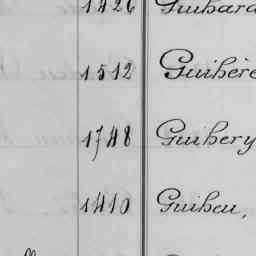 1426 Guihard
1512 Guihère
1748 Guihery
1410 Guiheu,